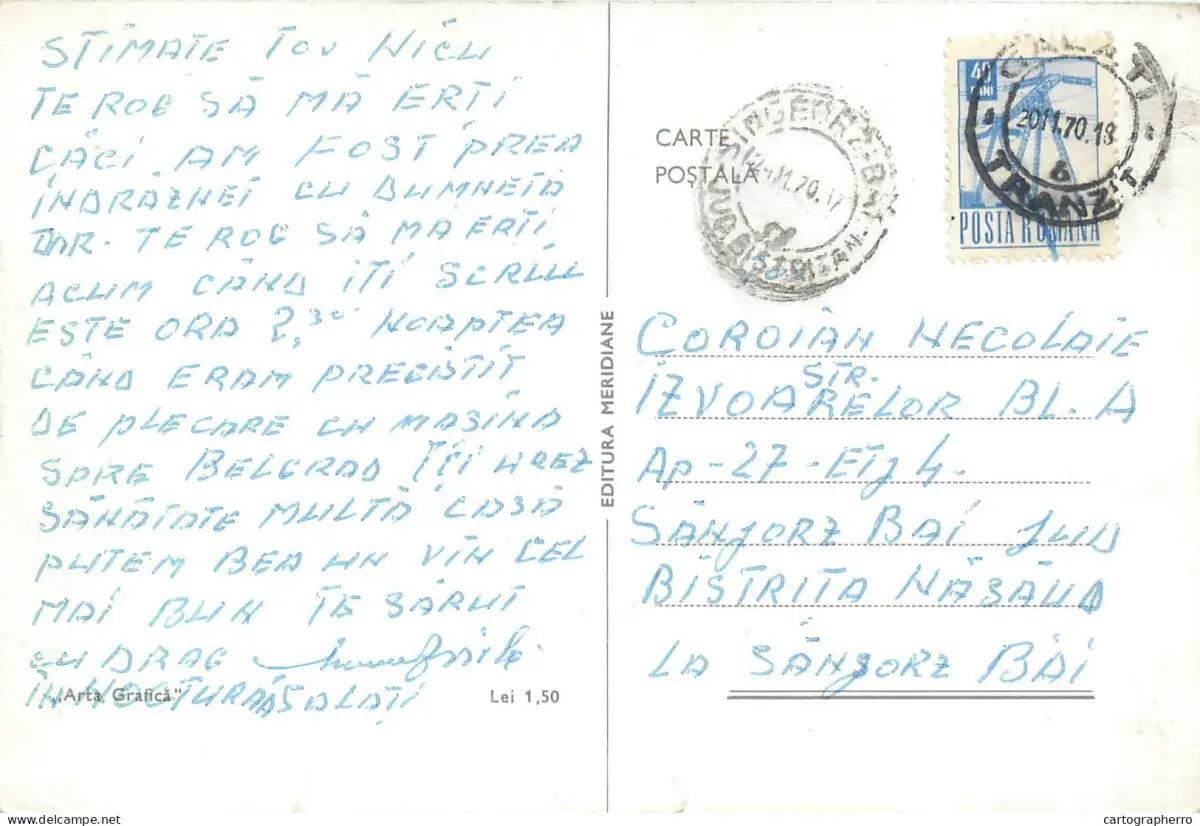 STIMATE TOV NICU
TE ROG SĂ MĂ ERȚI
CĂCI AM FOST PREA
ÎNDRĂZNEȚ CU DUMNETA
DAR. TE ROG SĂ MA ERȚI
ACUM CÂND IȚI SCRIU
ESTE ORA 2,30 NOAPTEA
CÂND ERAM PREGĂTIT
DE PLECARE CU MAȘINA
SPRE BELGRAD ÎȚI UREZ
SĂNĂTATE MULTĂ CASĂ
PUTEM BEA UN VIN CEL
MAI BUN TE SĂRUT
CU DRAG
„Arta Grafică“
Lei 1,50
GALAȚI
EDITURA MERIDIANE
CARTE
POȘTALĂ
SINGEORZ-BĂI
.70.17
40
BANI
POSTA ROMANA
GALATI
2011.70.18
TRANZIT
COROIÂN NECOLAIE
STR.
IZVOARELOR BL. A
AP-27-ETJ 4.
SÂNJORZ BĂI JUD
BÎSTRIȚA NĂSĂUD
LA SÂNJORZ BĂI
cartographerro